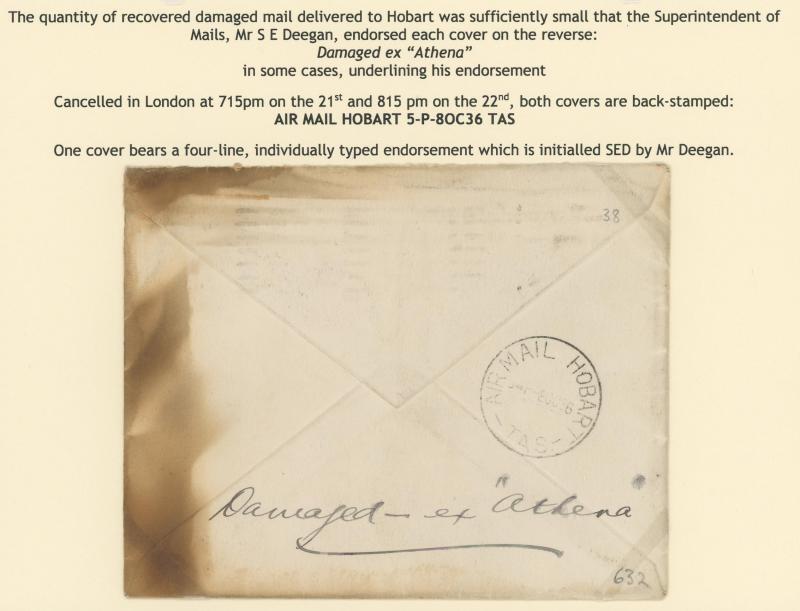 The quantity of recovered damaged mail delivered to Hobart was sufficiently small that the Superintendent of
Mails, Mr S E Deegan, endorsed each cover on the reverse:
Damaged ex “Athena”
in some cases, underlining his endorsement
Cancelled in London at 715pm on the 21st and 815 pm on the 22nd, both covers are back-stamped:
AIR MAIL HOBART 5-P-8OC36 TAS
One cover bears a four-line, individually typed endorsement which is initialled SED by Mr Deegan.
38
AIR MAIL HOBART
-TAS-
Damaged - ex "Athena"
632